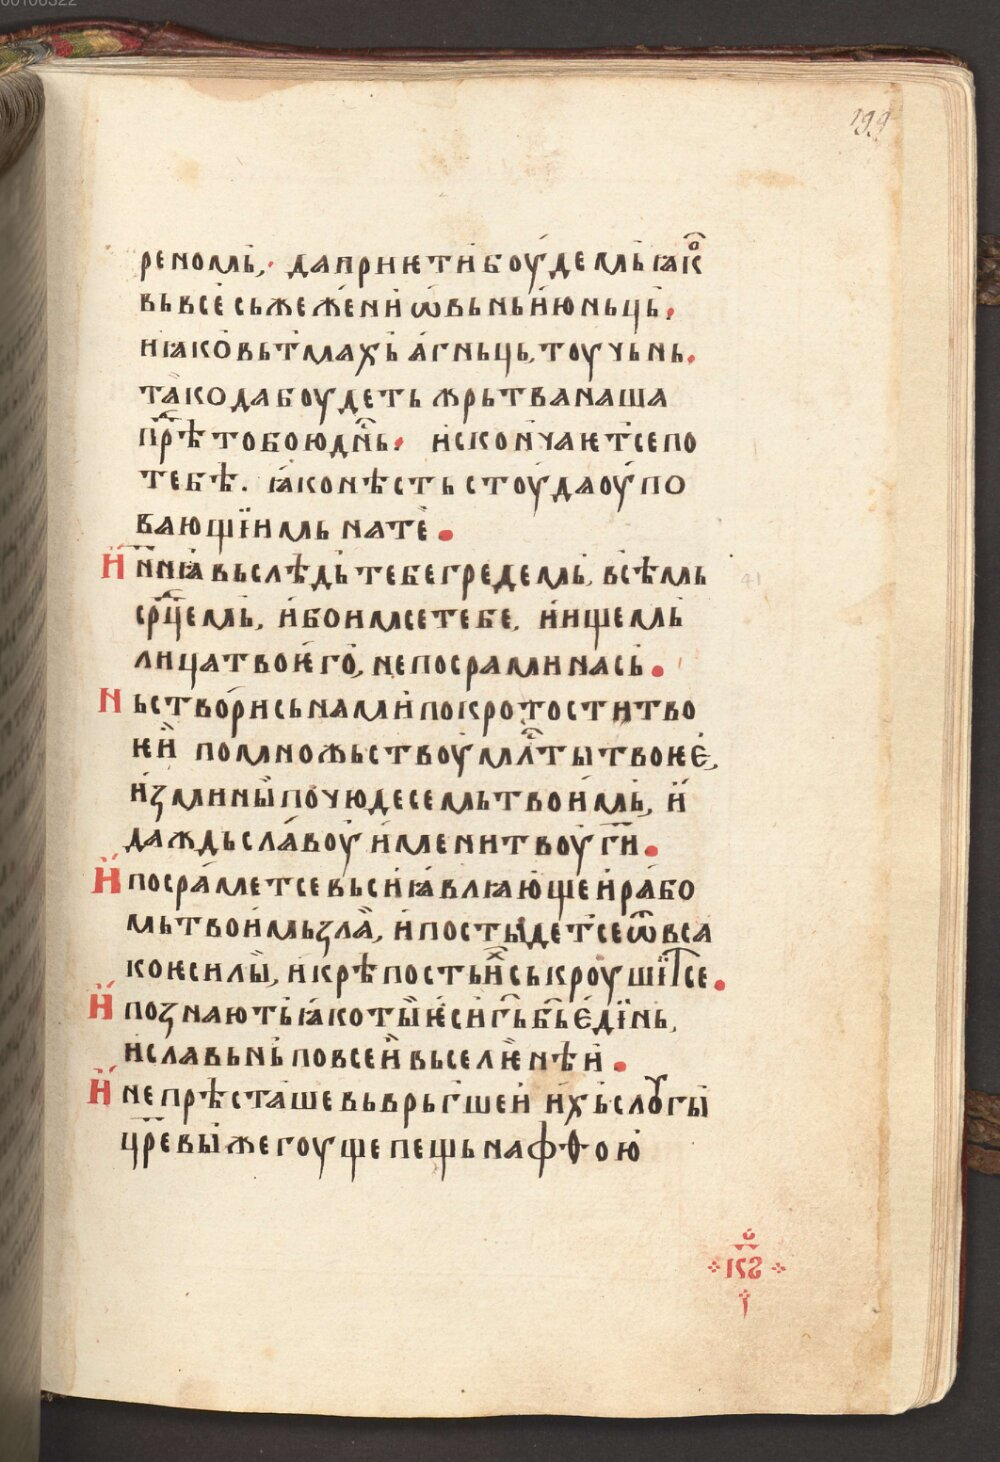 00108322
199
реномь, да приѥти боудемь ꙗкⷪ҇
вь все сьжежени ѡвьньи юньць.
и ꙗко вь тмахь агньць тоучьнь.
тако да боудеть жрьтва наша
прⷣѣ тобою дн҃ⷭь. и скончаѥтсе по
тебѣ. ꙗко нѣсть стоуда оупо
вающїимь на те.
И нн҃ꙗ вь слѣдь тебе гредемь, всѣмь
срⷣцемь, и боимсе тебе, и ищемь
лица твоѥго, не посрами нась.
Нь створи сь нами по кротости тво
ѥи по множьствоу млⷭ҇ты твоѥе,
изми ны по чюдесемь твоимь, и
даждь славоу имени твоу гⷭ҇и.
И посраметсе вьси ꙗвлꙗющеи рабо
мь твоимь зла, и постыдетсе ѿ вса
коѥ силы, и крѣпость иⷯ ськроушїтⷭ҇се.
И познають ꙗко ты ѥси гь҃ бь҃ едїнь,
и славьнь по всеи вьселѥнѣи.
И не прѣсташе вьврьгшеи ихь слоугы
црⷭ҇евы жегоуще пещь нафѳою
41